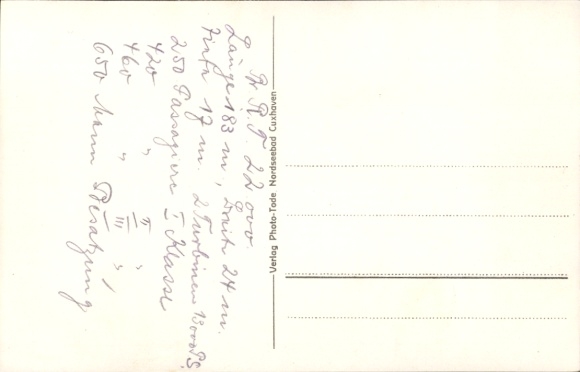 Br. R. T. 22 000
Länge 183 m, Breite 24 m.
Tiefe 17 m. 2 Turbinen 13000 PS.
250 Passagiere I Klasse
420 " II "
460 " III "
650 Mann Besatzung
Verlag Photo-Tode Nordseebad Cuxhaven